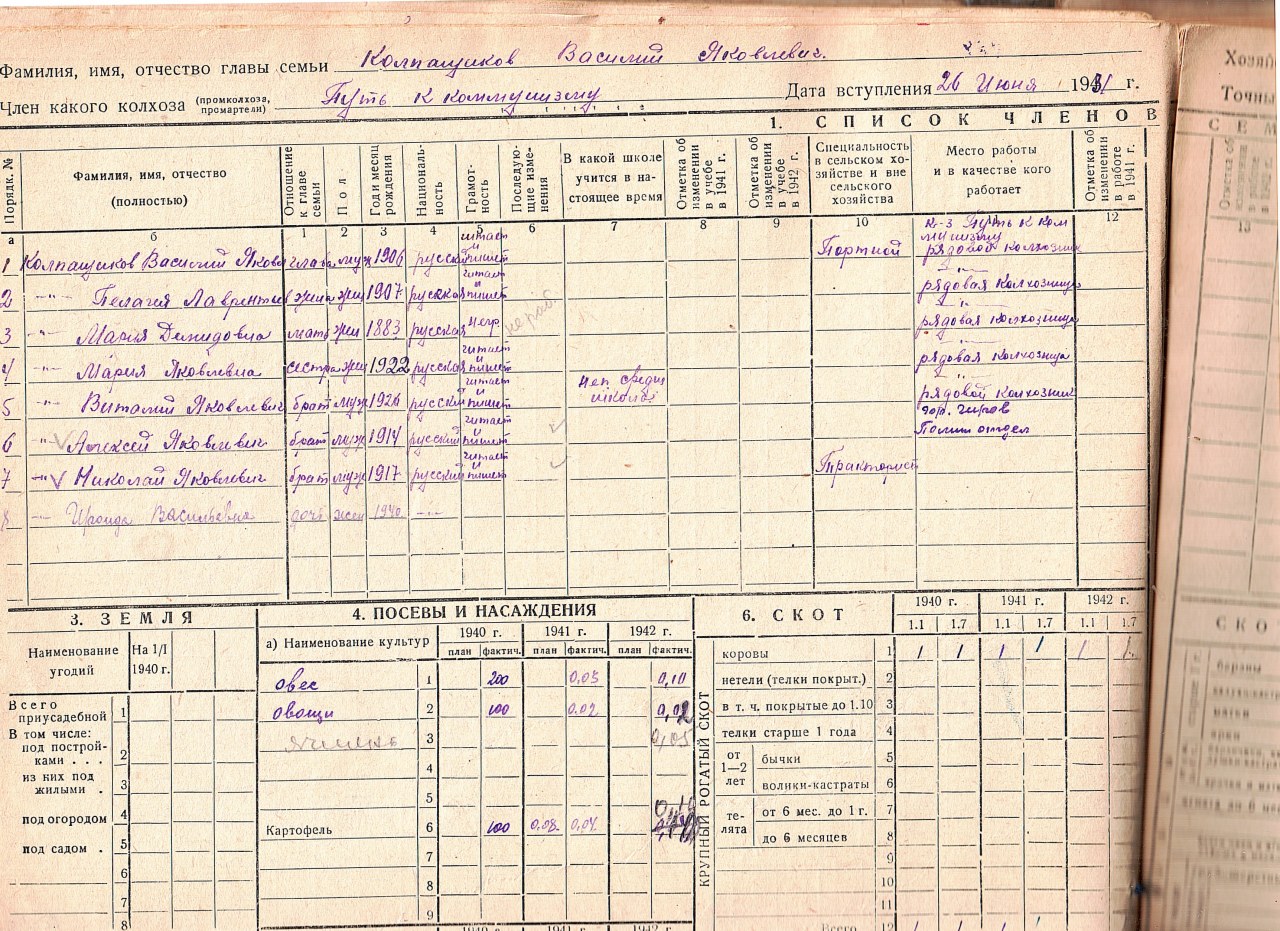 Фамилия, имя, отчество главы семьи Колпащиков Василий Яковлевич.
Член какого колхоза (промколхоза, промартели) Путь к коммунизму Дата вступления 26 Июня 1931 г.
1. СПИСОК ЧЛЕНОВ
Порядк. №
Фамилия, имя, отчество (полностью)
Отношение к главе семьи
Пол
Год и месяц рождения
Националь-ность
Грамот-ность
Последую-щие изме-нения
В какой школе учится в на-стоящее время
Отметка об изменении в учебе в 1941 г.
Отметка об изменении в учебе в 1942 г.
Специальность в сельском хо-зяйстве и вне сельского хозяйства
Место работы и в качестве кого работает
Отметка об изменении в работе в 1941 г.
а б 1 2 3 4 5 6 7 8 9 10 11 12
1 Колпащиков Василий Яковл глава муж 1906 русский читает и пишет Портной к-з Путь к ком мунизму рядовой колхозник
2 -"- Пелагия Лаврентив жена жен 1907 русская читает и пишет -"- рядовая колхозница
3 -"- Мария Демидовна мать жен 1883 русская негр -"- рядовая колхозница
4 -"- Мария Яковлевна сестра жен 1922 русская читает и пишет рядовая колхозница
5 -"- Виталий Яковлевич брат муж 1926 русский читает и пишет неп. средн школы -"- рядовой колхозник
6 -"- Алексей Яковлевич брат муж 1914 русский читает и пишет гор. Киров Полит отдел
7 -"- Николай Яковлевич брат муж 1917 русский читает и пишет Тракторист
8 -"- Ираида Васильевна дочь жен 1940 -"-
3. ЗЕМЛЯ
Наименование угодий На 1/I 1940 г.
Всего приусадебной 1
В том числе:
под построй-ками . . . 2
из них под жилыми . 3
под огородом 4
под садом . 5
6
7
8
4. ПОСЕВЫ И НАСАЖДЕНИЯ
а) Наименование культур 1940 г. 1941 г. 1942 г.
план фактич. план фактич. план фактич.
овес 1 200 0,05 0,10
овощи 2 100 0.02 0,02
ячмень 3 0,05
4
5
Картофель 6 100 0,08 0,04
7
8
9
1940 г. 1941 г. 1942 г.
6. СКОТ
1940 г. 1941 г. 1942 г.
1.1 1.7 1.1 1.7 1.1 1.7
КРУПНЫЙ РОГАТЫЙ СКОТ
коровы 1 1 1 1 1 1 1
нетели (телки покрыт.) 2
в т. ч. покрытые до 1.10 3
телки старше 1 года 4
от 1—2 лет бычки 5
волики-кастраты 6
те-лята от 6 мес. до 1 г. 7
до 6 месяцев 8
9
10
11
Всего 12 1 1 1 1
Хозяй
Точны
СЕМ
13
СКО
бараны
матки